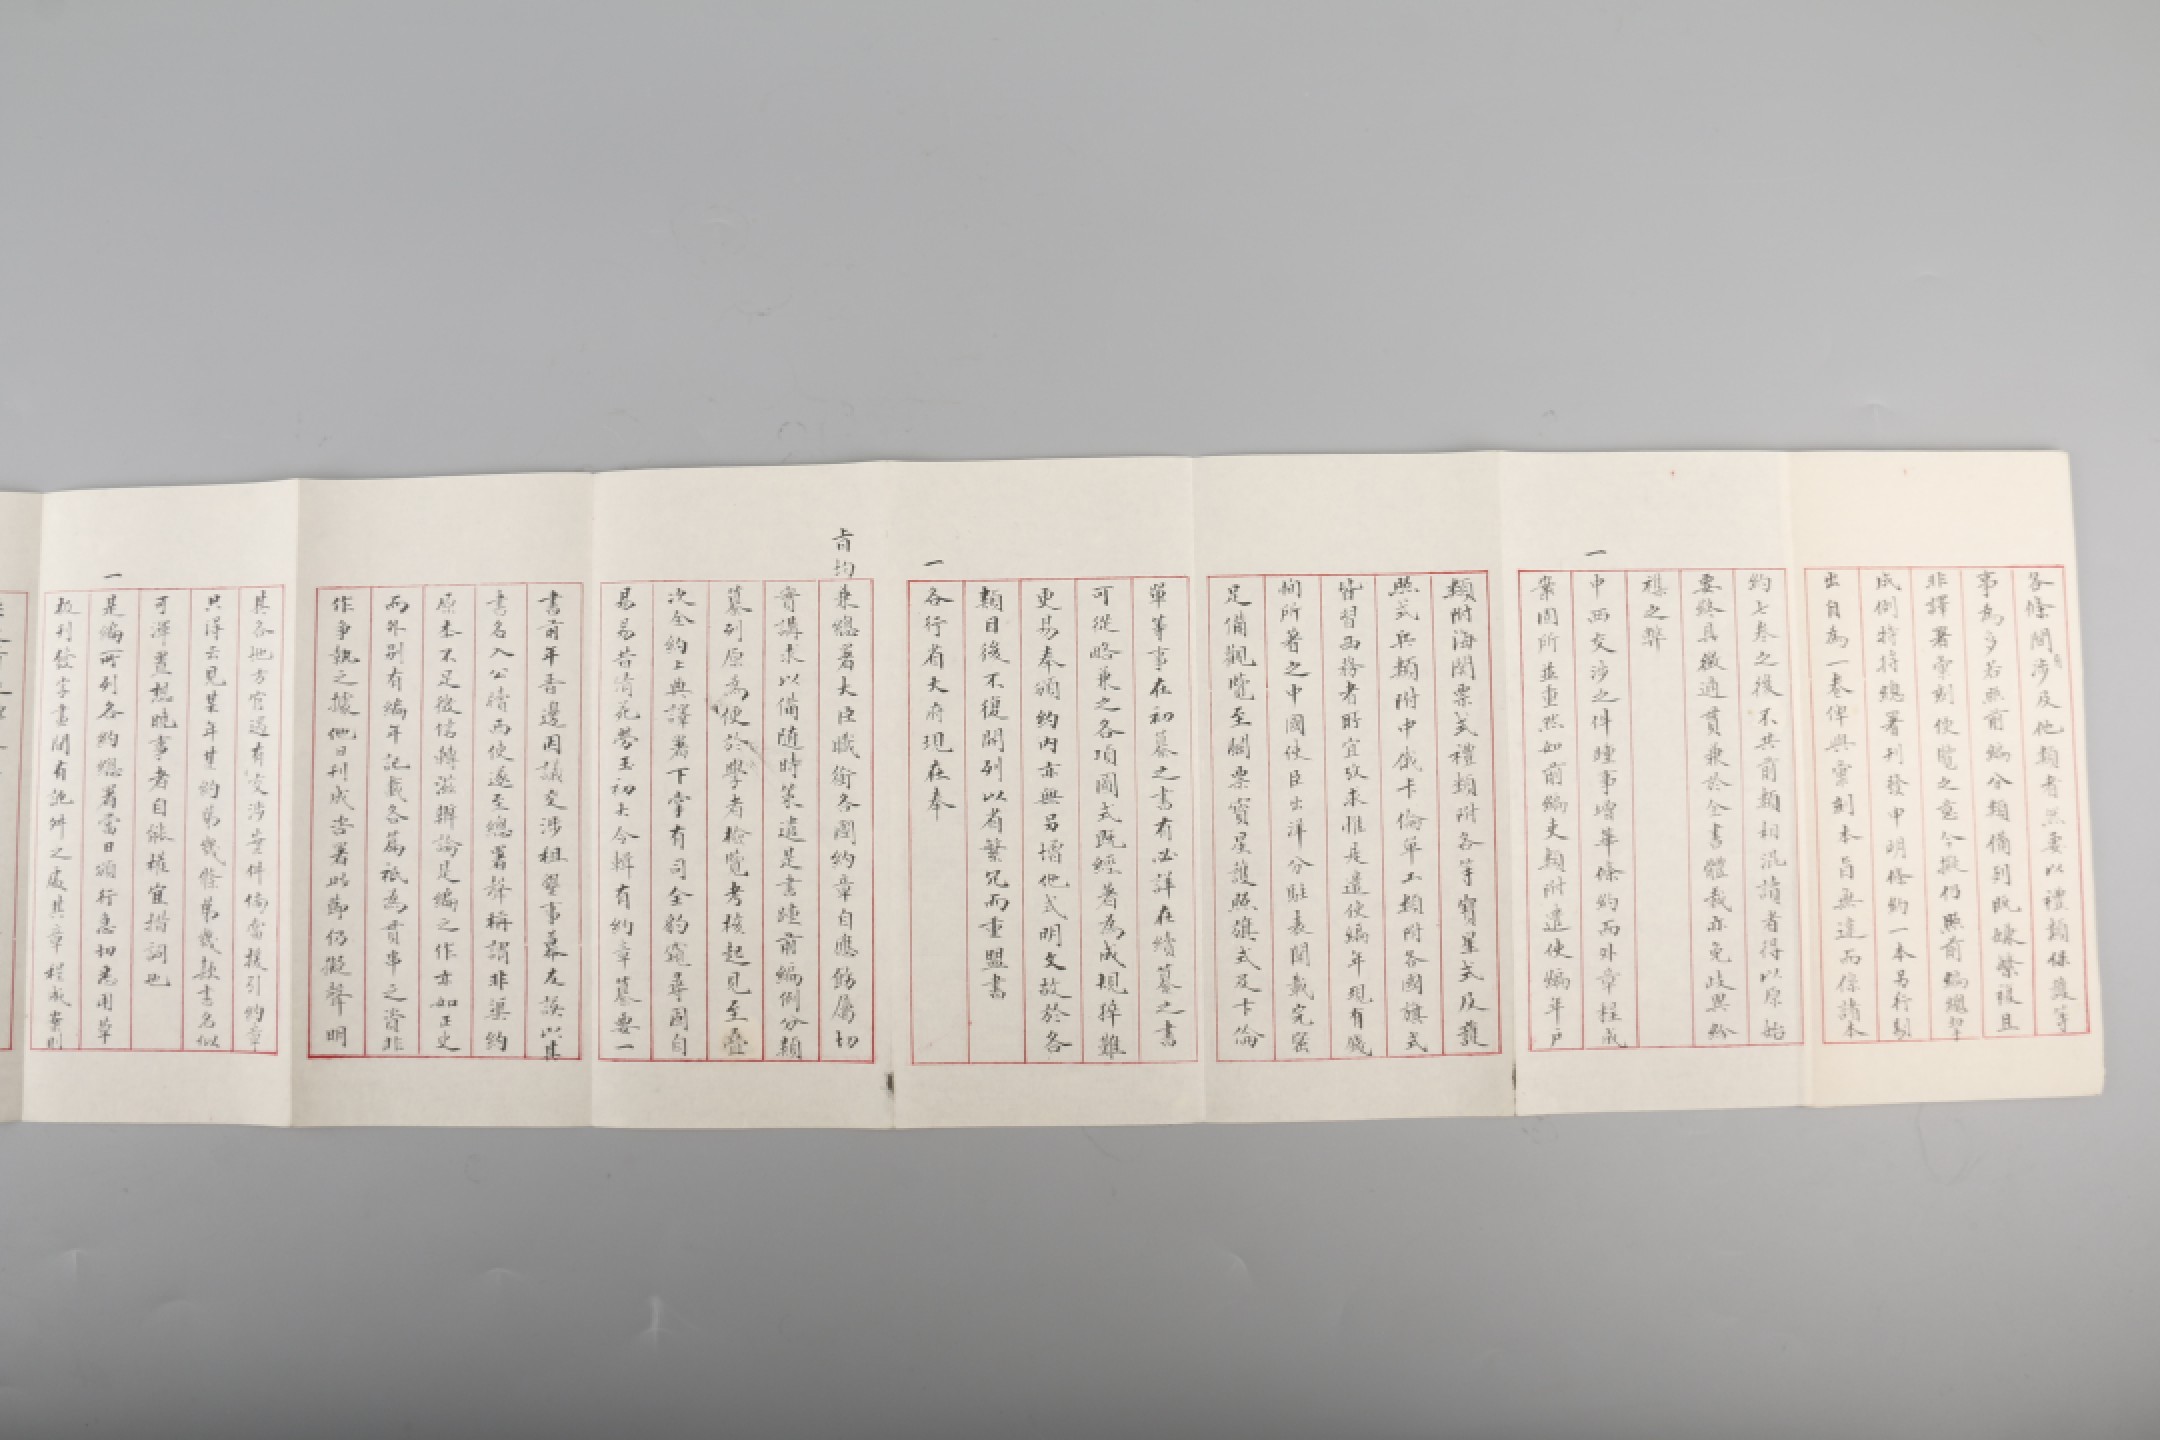 各條間有涉及他類者然要以禮類保護等
事為多若照前編分類備列既嫌繁複且
非譯署彙刻便覽之意今擬仍照前編總署
成例特將總署刊發申明條約一本另行刻
出自為一卷俾與彙刻本旨無違而條請本
約七卷之後不共前類相混讀者得以原始
要終具徵通貫兼於全書體裁亦免歧異紛
糅之弊
一中西交涉之件踵事增華條約而外章程成
案固所並重然如前編吏類附遣使編年戶
類附海關票式禮類附各等寶星式及護
照式兵類附中俄卡倫單工類附各國旗式
皆習西務者所宜攷求惟是遣使編年現有
刻所著之中國使臣出洋分駐表開載完密
足備觀覽至關票寶星護照旗式及卡倫
單等事在初纂之書有必詳在續纂之書
可從略兼之各項圖式既經著為成規猝難
更易奉頒約內亦無另增他式明文故於各
類目後不復開列以省繁冗而重盟書
一各行省大府現在奉
旨均兼總署大臣職銜各國約章自應飭屬切
實講求以備隨時策遣是書踵前編例分類
纂列原為便於學者檢覽考核起見至臺
次全約上典譯署下掌有司全豹窺尋固自
易易昔清苑勞玉初大令輯有約章纂要一
書前年晉邊因議交涉租墾事幕友誤以其
書名入公牘而使遂至總署辭稱謂非渠約
原本不足徵信轉滋辯論是編之作亦如正史
而外別有編年記載各篇祇為貫串之資非
作爭執之據他日刊成咨署時節仍擬聲明
其各地方官遇有交涉案件倘當援引約章
只得云見某年某約第幾條第幾款書名似
可渾置想曉事者自能權宜措詞也
一是編所列各約總署當日頒行急切悉用草
板刊發字畫間有訛舛之處其章程成案則